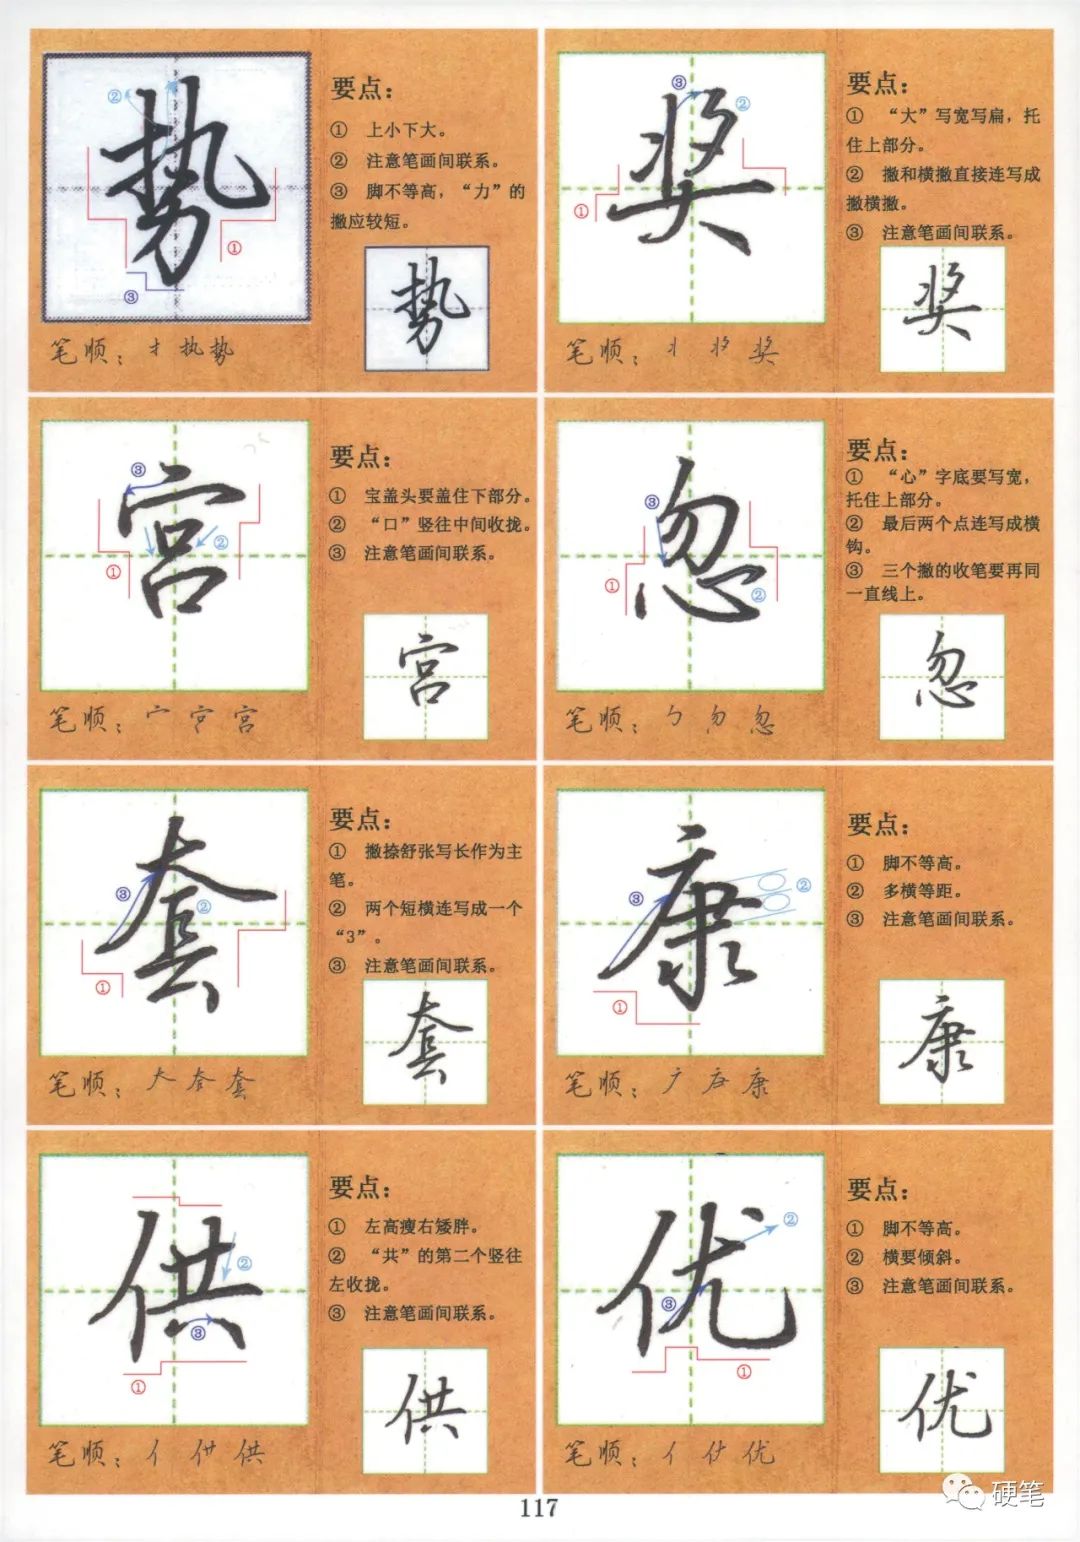 势
要点：
① 上小下大。
② 注意笔画间联系。
③ 脚不等高，“力”的
撇应较短。
势
笔顺：扌执势
奖
要点：
① “大”写宽写扁，托
住上部分。
② 撇和横撇直接连写成
撇横撇。
③ 注意笔画间联系。
奖
笔顺：丬 奖
宫
要点：
① 宝盖头要盖住下部分。
② “口”竖往中间收拢。
③ 注意笔画间联系。
宫
笔顺：宀 宫
忽
要点：
① “心”字底要写宽，
托住上部分。
② 最后两个点连写成横
钩。
③ 三个撇的收笔要再同
一直线上。
忽
笔顺：勹 勿 忽
套
要点：
① 撇捺舒张写长作为主
笔。
② 两个短横连写成一个
“3”。
③ 注意笔画间联系。
套
笔顺：大 套
康
要点：
① 脚不等高。
② 多横等距。
③ 注意笔画间联系。
康
笔顺：广 康
供
要点：
① 左高瘦右矮胖。
② “共”的第二个竖往
左收拢。
③ 注意笔画间联系。
供
笔顺：亻 供
优
要点：
① 脚不等高。
② 横要倾斜。
③ 注意笔画间联系。
优
笔顺：亻 优
117
硬笔